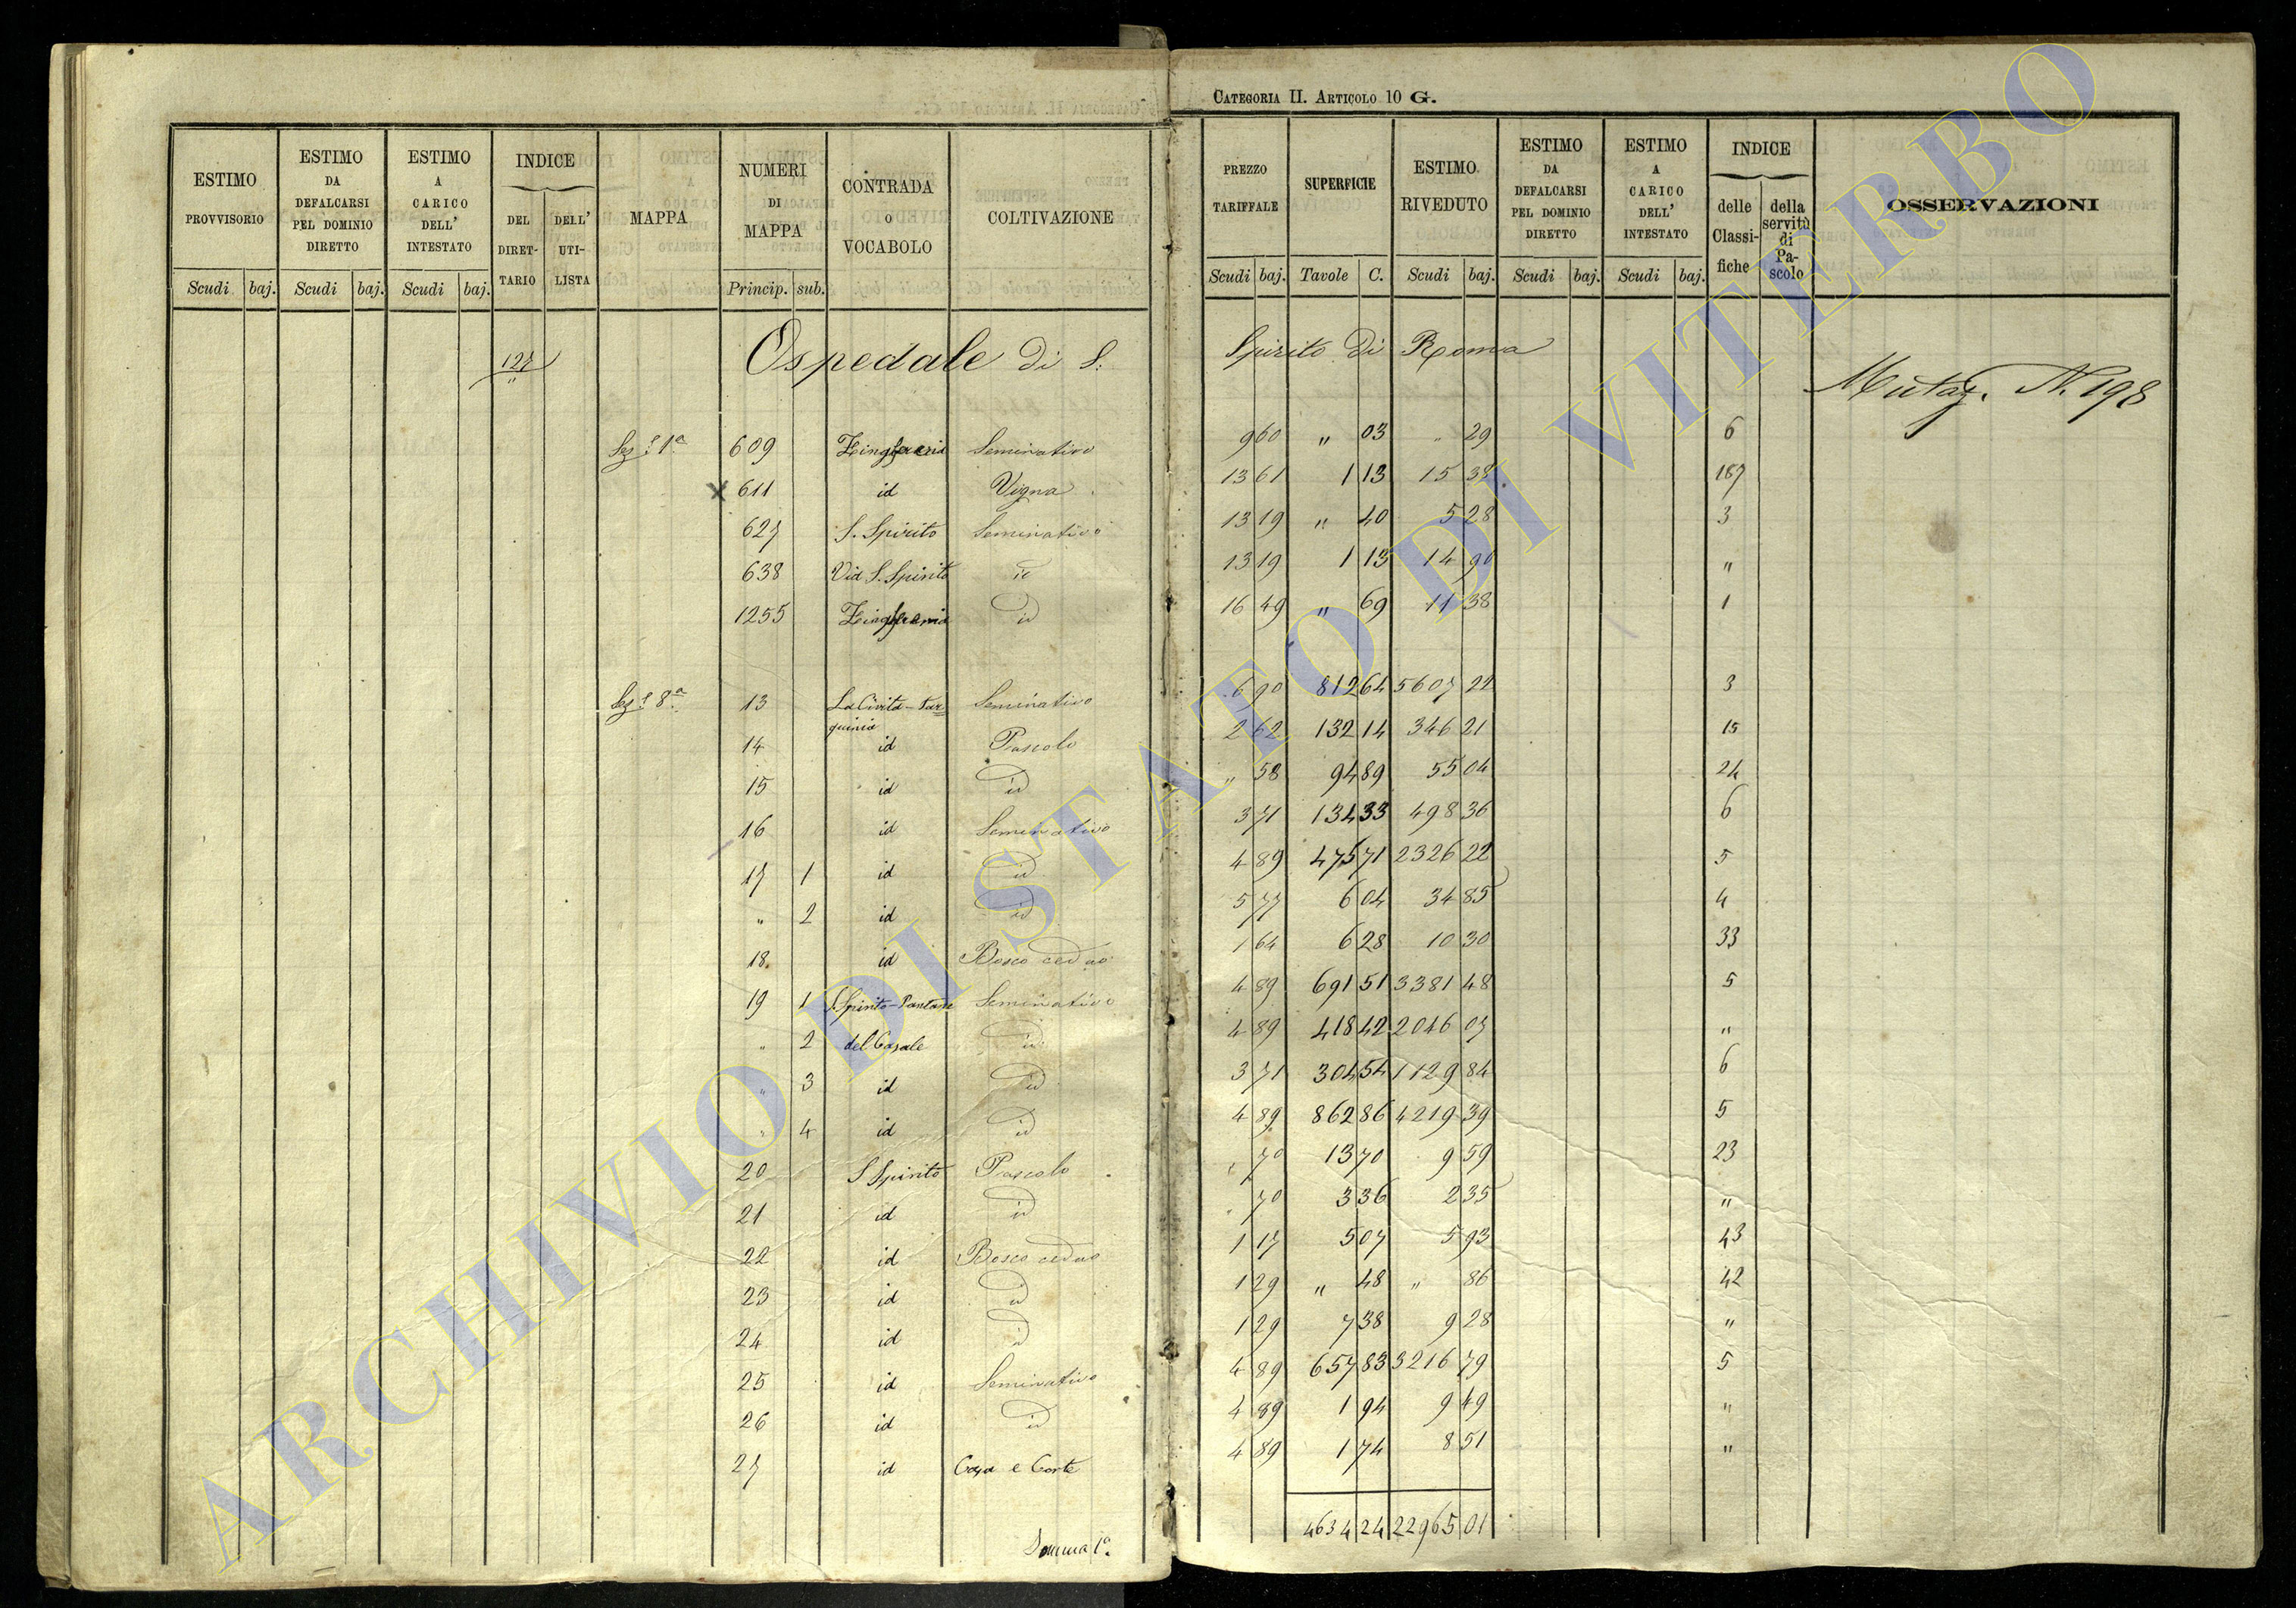 CATEGORIA II. ARTICOLO 10 G.
ESTIMO PROVVISORIO Scudi baj.
ESTIMO DA DEFALCARSI PEL DOMINIO DIRETTO Scudi baj.
ESTIMO A CARICO DELL' INTESTATO Scudi baj.
INDICE DEL DIRETTARIO DELL' UTILISTA
MAPPA
NUMERI DI MAPPA Princip. sub.
CONTRADA o VOCABOLO
COLTIVAZIONE
PREZZO TARIFFALE Scudi baj.
SUPERFICIE Tavole C.
ESTIMO RIVEDUTO Scudi baj.
ESTIMO DA DEFALCARSI PEL DOMINIO DIRETTO Scudi baj.
ESTIMO A CARICO DELL' INTESTATO Scudi baj.
INDICE delle Classifiche della servitù di Pascolo
OSSERVAZIONI
127 Ospedale di S. Spirito di Roma
Mutaz. N. 198
Sez.e 1a 609 Seminativo 9 60 " 03 " 29 6
X 611 id Vigna 13 61 1 13 15 38 187
627 S. Spirito Seminativo 13 19 " 40 5 28 3
638 Via S. Spirito id 13 19 1 13 14 90 "
1255 id 16 49 " 69 11 38 1
Sez.e 8a 13 La Civita-Tarquinia Seminativo 6 90 812 64 5607 22 3
14 id Pascolo 2 62 132 14 346 21 15
15 id id " 58 94 89 55 04 24
16 id Seminativo 3 71 134 33 498 36 6
17 1 id id 4 89 475 71 2326 22 5
" 2 id id 5 77 6 04 34 85 4
18 id Bosco ceduo 1 64 6 28 10 30 33
19 1 S. Spirito-Pantane Seminativo 4 89 691 51 3381 48 5
" 2 del Casale id 4 89 418 42 2046 07 "
" 3 id id 3 71 304 54 1129 84 6
" 4 id id 4 89 862 86 4219 39 5
20 S Spirito Pascolo " 70 13 70 9 59 23
21 id id " 70 3 36 2 35 "
22 id Bosco ceduo 1 17 5 07 5 93 43
23 id id 1 29 " 48 " 86 42
24 id id 1 29 7 38 9 28 "
25 id Seminativo 4 89 657 83 3216 79 5
26 id id 4 89 1 94 9 49 "
27 id Casa e Corte 4 89 1 74 8 51 "
Somma 1a. 4634 24 22965 01
ARCHIVIO DI STATO DI VITERBO